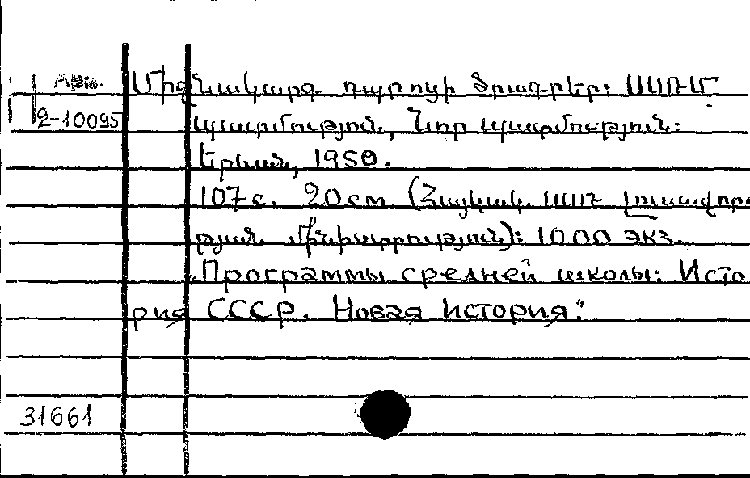 Միջնակարգ դպրոցի ծրագրեր: ՍՍՌՄ
2-10095
պատմություն, Նոր պատմություն:
Երևան, 1950.
107 с. 20 см (Հայկական ՍՍՌ Լուսավորու
թյան մինիստրություն): 1000 экз.
"Программы средней школы: Исто
рия СССР. Новая история."
31661